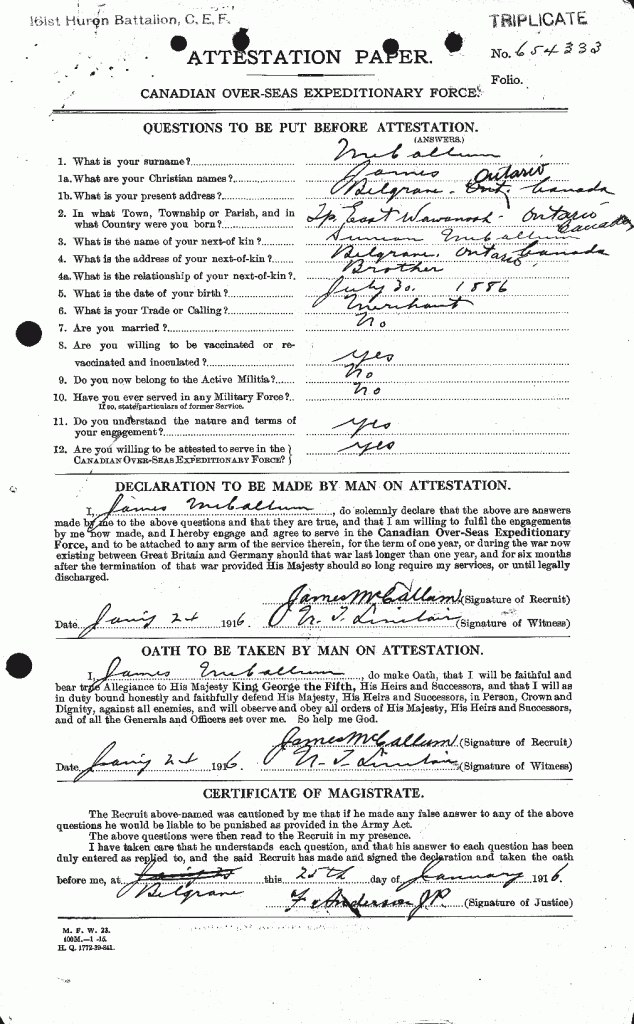 161st Huron Battalion, C. E. F.
TRIPLICATE
ATTESTATION PAPER.
No. 654333
Folio.
CANADIAN OVER-SEAS EXPEDITIONARY FORCE.
QUESTIONS TO BE PUT BEFORE ATTESTATION.
(ANSWERS.)
1. What is your surname? McCallum
1a. What are your Christian names? James
1b. What is your present address? Belgrave. Ont. Ontario Canada
2. In what Town, Township or Parish, and in what Country were you born? Tp. East Wawanosh - Ontario Canada
3. What is the name of your next-of kin? Duncan McCallum
4. What is the address of your next-of-kin? Belgrave, Ontario Canada
4a. What is the relationship of your next-of-kin? Brother
5. What is the date of your birth? July 30. 1886
6. What is your Trade or Calling? Merchant
7. Are you married? No
8. Are you willing to be vaccinated or re-
vaccinated and inoculated? Yes
9. Do you now belong to the Active Militia? No
10. Have you ever served in any Military Force? No
If so, state particulars of former Service.
11. Do you understand the nature and terms of
your engagement? Yes
12. Are you willing to be attested to serve in the
CANADIAN OVER-SEAS EXPEDITIONARY FORCE? Yes
DECLARATION TO BE MADE BY MAN ON ATTESTATION.
I, James McCallum, do solemnly declare that the above are answers
made by me to the above questions and that they are true, and that I am willing to fulfil the engagements
by me now made, and I hereby engage and agree to serve in the Canadian Over-Seas Expeditionary
Force, and to be attached to any arm of the service therein, for the term of one year, or during the war now
existing between Great Britain and Germany should that war last longer than one year, and for six months
after the termination of that war provided His Majesty should so long require my services, or until legally
discharged.
James McCallum (Signature of Recruit)
Date Jan'y 24 1916 N. T. Sinclair (Signature of Witness)
OATH TO BE TAKEN BY MAN ON ATTESTATION.
I, James McCallum, do make Oath, that I will be faithful and
bear true Allegiance to His Majesty King George the Fifth, His Heirs and Successors, and that I will as
in duty bound honestly and faithfully defend His Majesty, His Heirs and Successors, in Person, Crown and
Dignity, against all enemies, and will observe and obey all orders of His Majesty, His Heirs and Successors,
and of all the Generals and Officers set over me. So help me God.
James McCallum (Signature of Recruit)
Date Jan'y 24 1916 N. T. Sinclair (Signature of Witness)
CERTIFICATE OF MAGISTRATE.
The Recruit above-named was cautioned by me that if he made any false answer to any of the above
questions he would be liable to be punished as provided in the Army Act.
The above questions were then read to the Recruit in my presence.
I have taken care that he understands each question, and that his answer to each question has been
duly entered as replied to, and the said Recruit has made and signed the declaration and taken the oath
before me, at Belgrave this 25th day of January 1916
F. Anderson J.P. (Signature of Justice)
M. F. W. 23.
400M.—1-15.
H. Q. 1772-39-841.